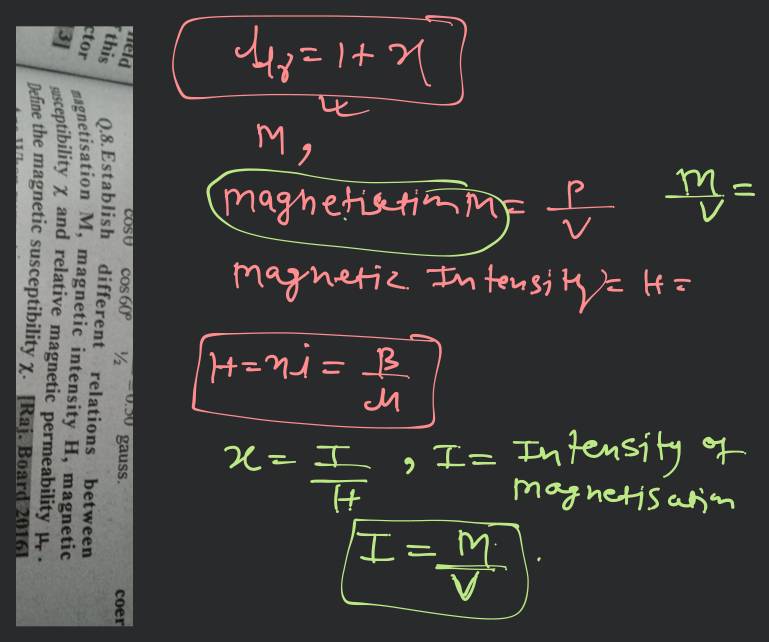 field
this
ctor
3]
cos0 cos 60° ½ = 0.50 gauss.
coer
Q.8. Establish different relations between
magnetisation M, magnetic intensity H, magnetic
susceptibility χ and relative magnetic permeability μr.
Define the magnetic susceptibility χ. [Raj. Board 2016]
μr = 1 + x
M,
magnetisation M = P/V
m/V =
magnetic Intensity = H =
H = ni = B/μ
x = I/H , I = Intensity of
magnetisation
I = M/V .